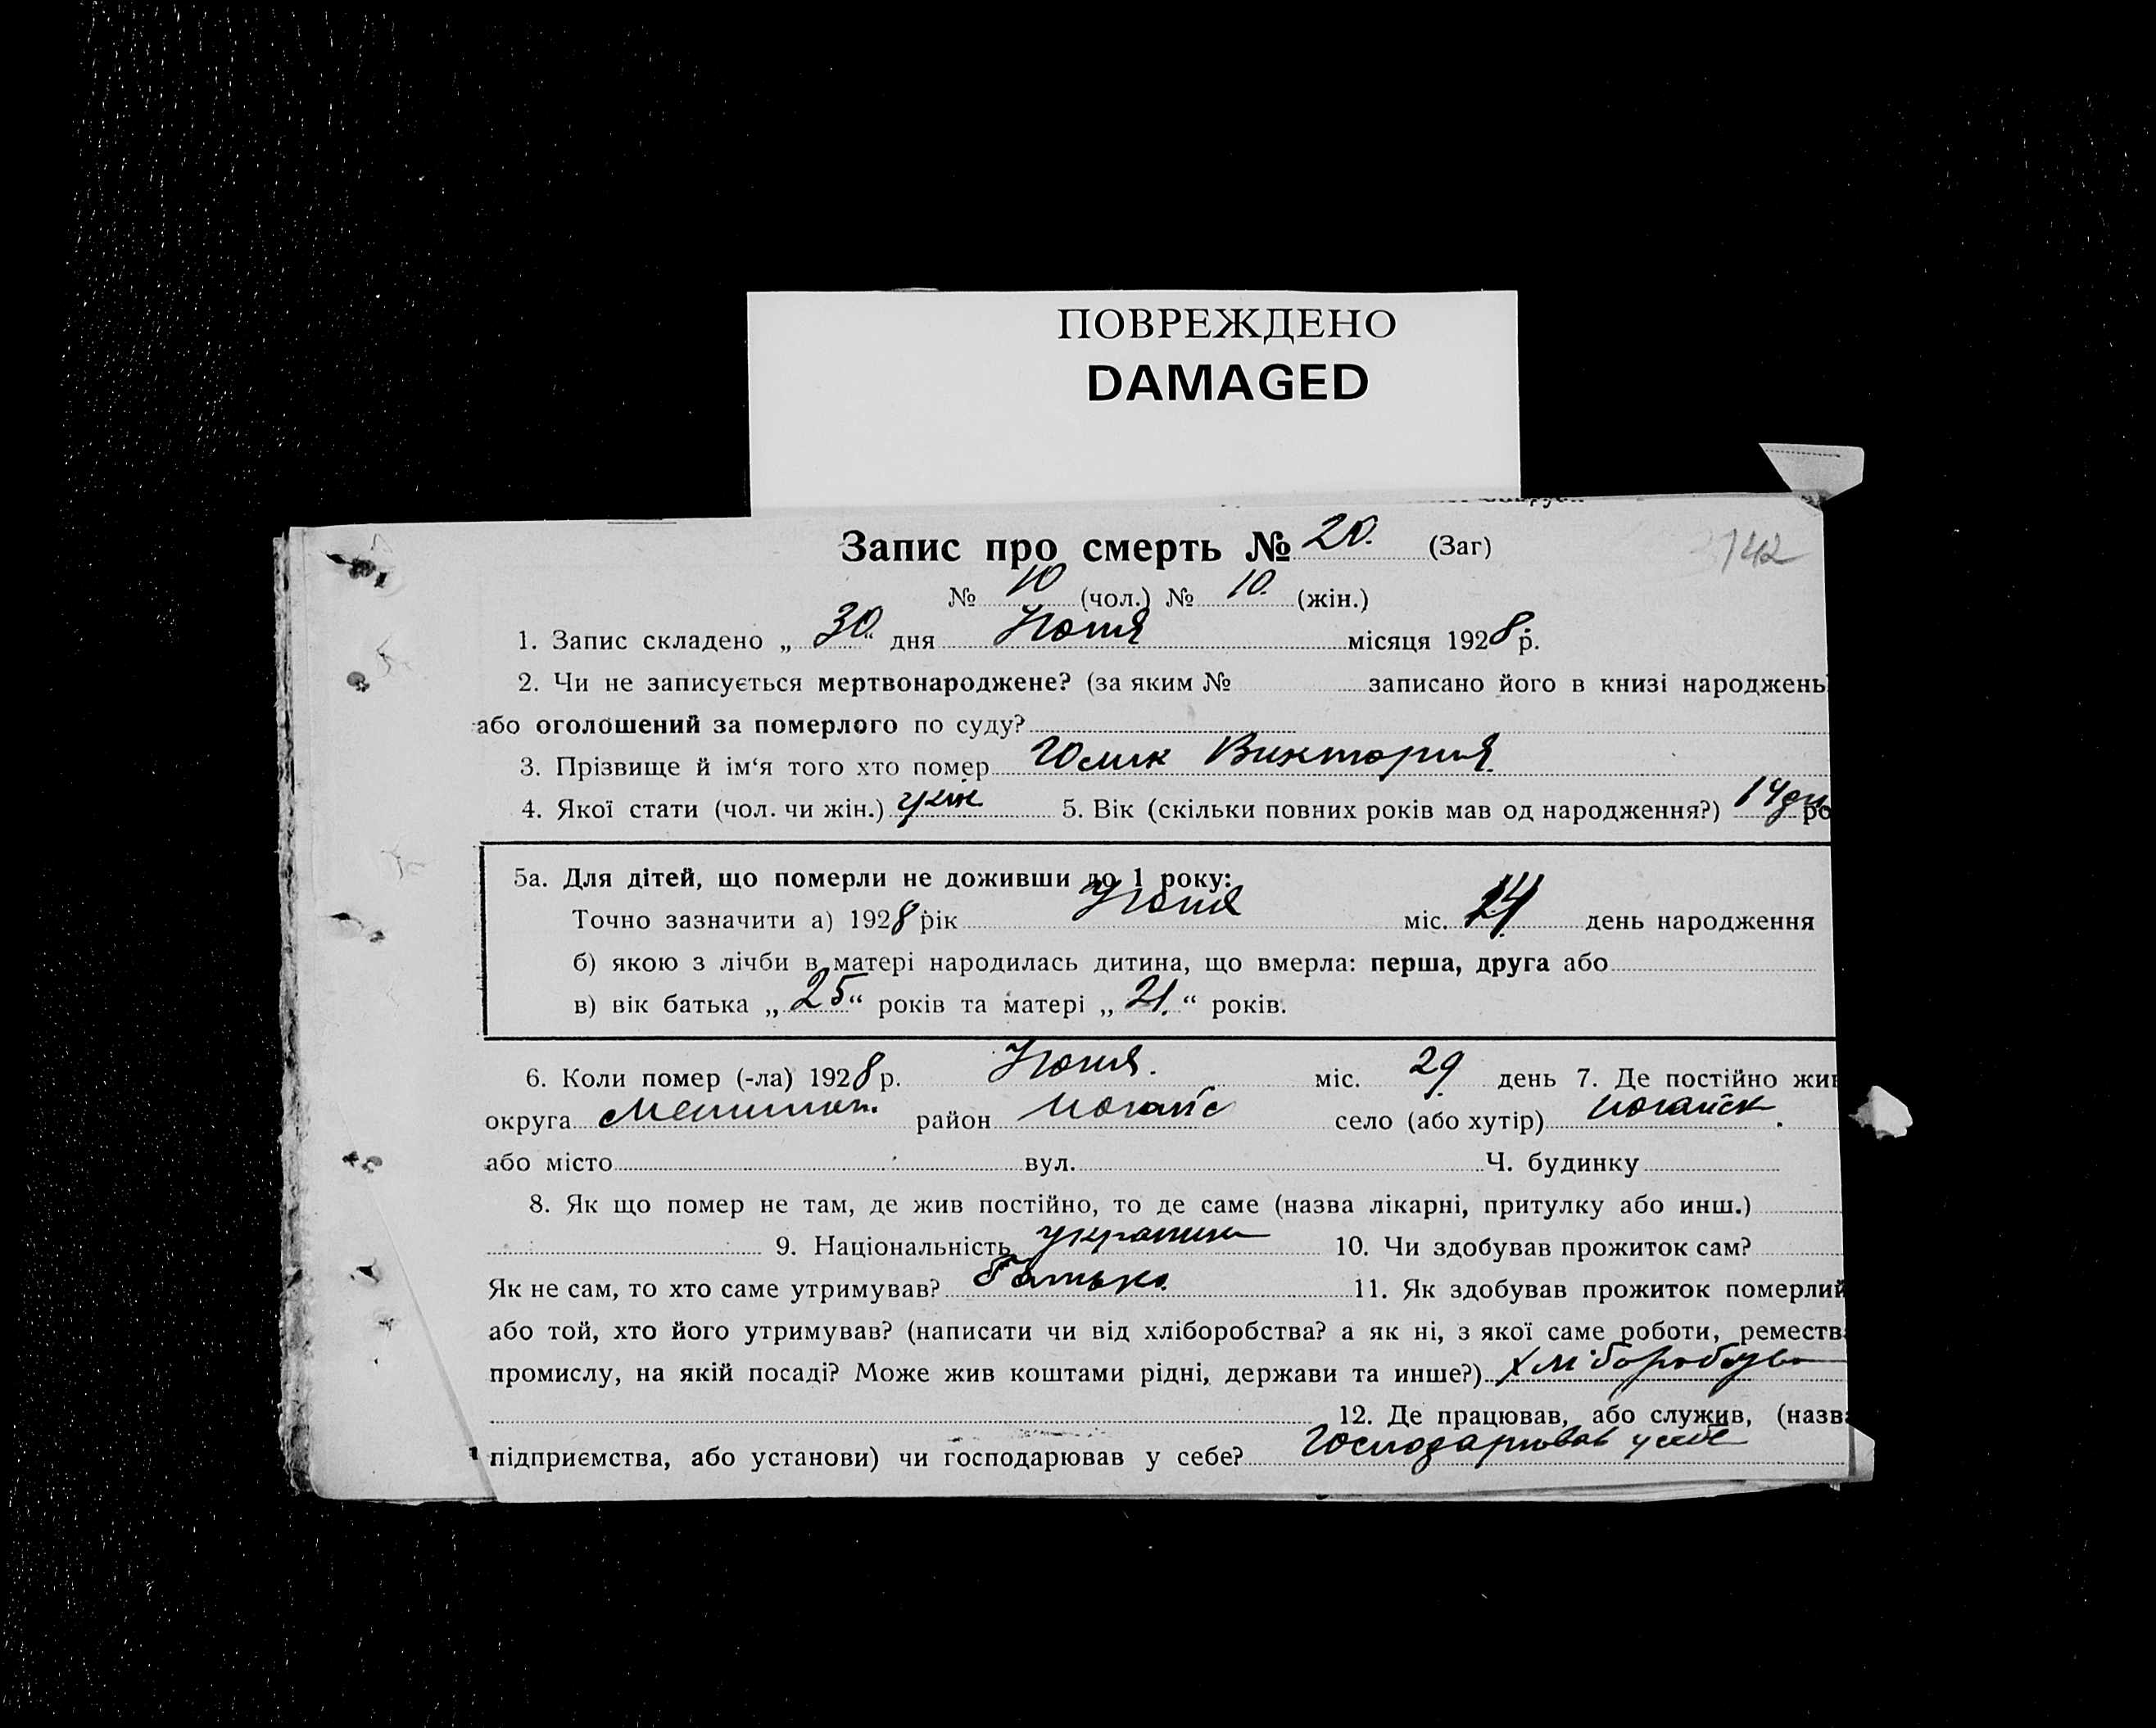 ПОВРЕЖДЕНО
DAMAGED
Запис про смерть № 20. (Заг)
3142
№ 10 (чол.) № 10. (жін.)
1. Запис складено „ 30 “ дня Июня місяця 1928 р.
2. Чи не записується мертвонароджене? (за яким № записано його в книзі народжень
або оголошений за померлого по суду?
3. Прізвище й ім‘я того хто помер Юмик Виктория
4. Якої стати (чол. чи жін.) жін 5. Вік (скільки повних років мав од народження?) 14 дн ро
5а. Для дітей, що померли не доживши до 1 року:
Точно зазначити а) 1928 рік Июня міс. 14 день народження
б) якою з лічби в матері народилась дитина, що вмерла: перша, друга або
в) вік батька „ 25 “ років та матері „ 21. “ років.
6. Коли помер (-ла) 1928 р. Июня. міс. 29 день 7. Де постійно жив
округа район Ногайс село (або хутір) Ногайск.
або місто вул. Ч. будинку
8. Як що помер не там, де жив постійно, то де саме (назва лікарні, притулку або инш.)
9. Національність україни 10. Чи здобував прожиток сам?
Як не сам, то хто саме утримував? Батько. 11. Як здобував прожиток померлий
або той, хто його утримував? (написати чи від хліборобства? а як ні, з якої саме роботи, реместв
промислу, на якій посаді? Може жив коштами рідні, держави та инше?) хліборобство
12. Де працював, або служив, (назва
підприємства, або установи) чи господарював у себе? Господарював у себе